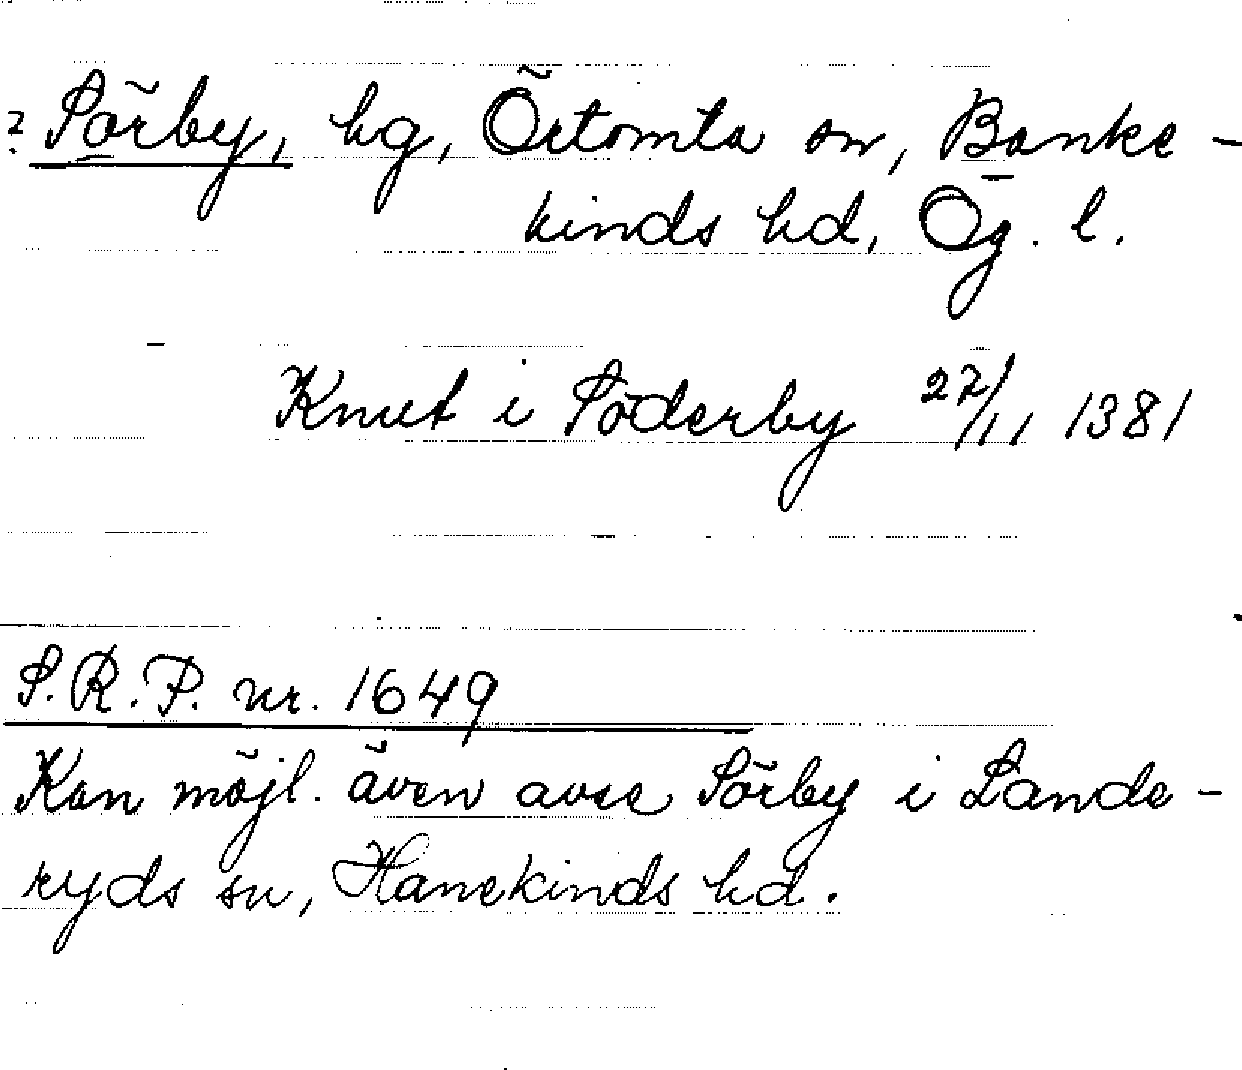 ? Sörby, hg, Örtomta sn, Banke-
kinds hd, Ög. l.
Knut i Söderby 27/11 1381
S.R.P. nr. 1649
Kan möjl. även avse Sörby i Lande-
ryds sn, Hanekinds hd.